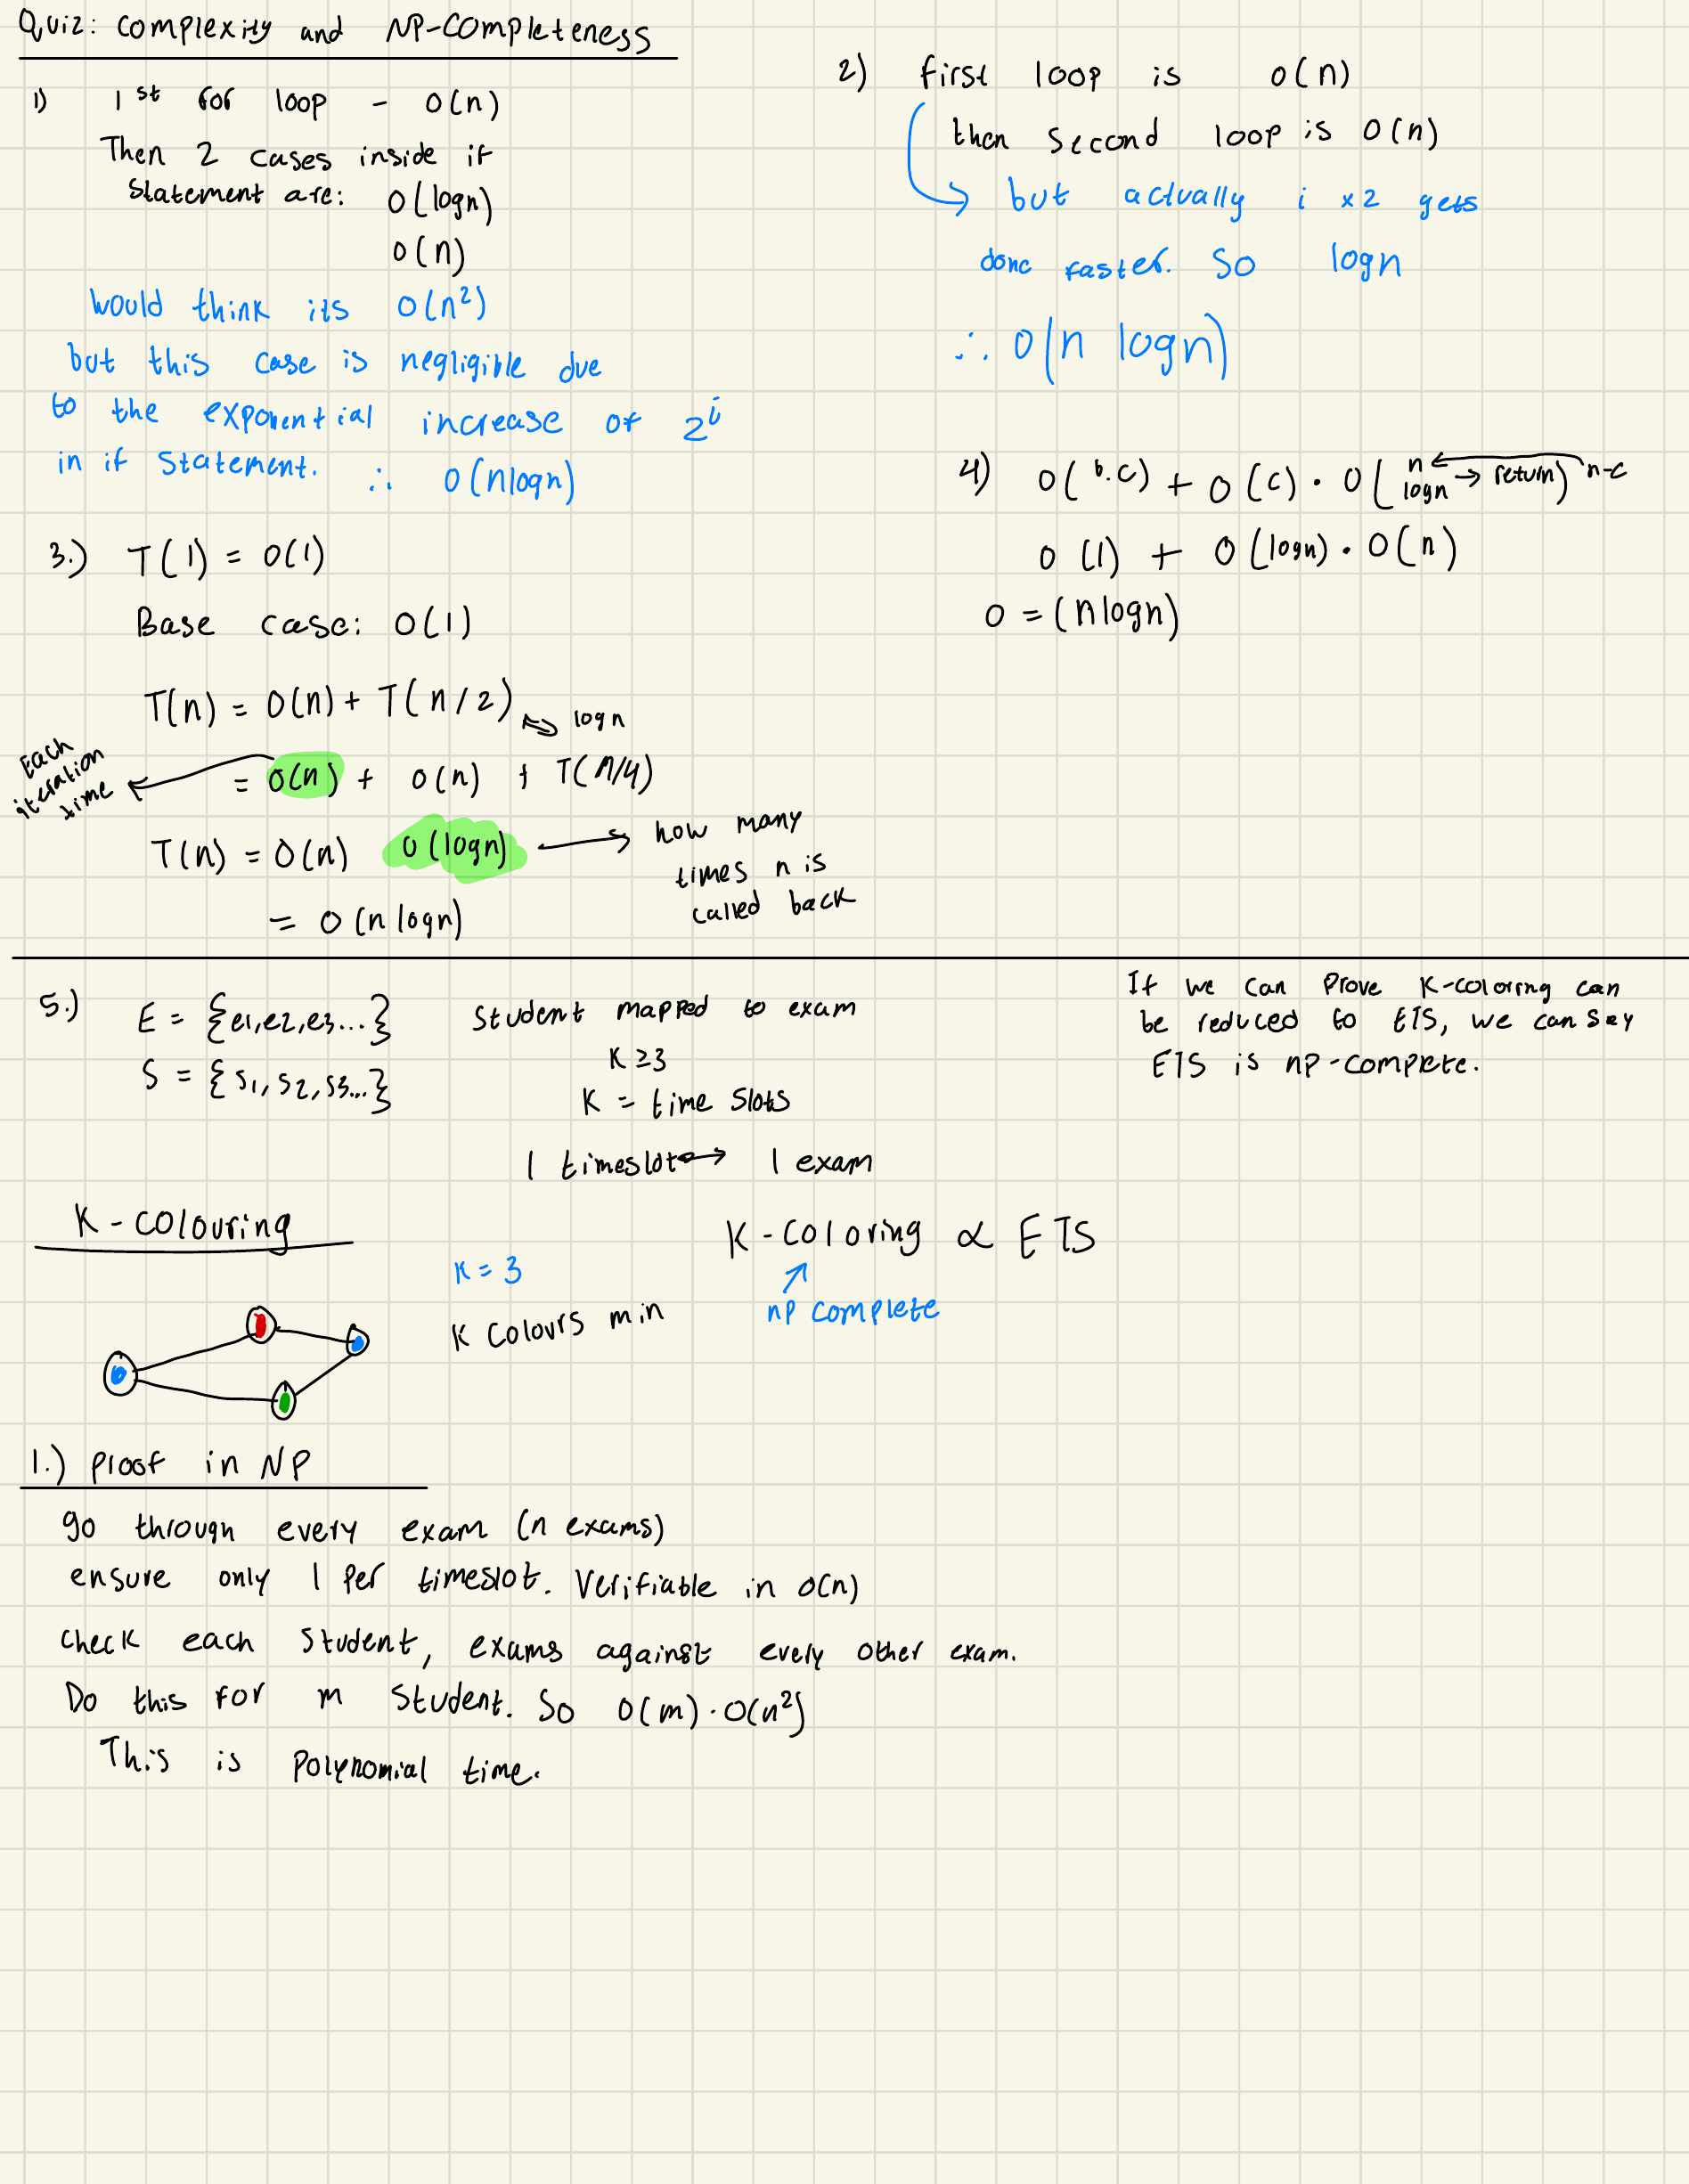 Quiz: Complexity and NP-Completeness
1) 1st for loop - O(n)
Then 2 cases inside if
statement are: O(logn)
O(n)
would think its O(n²)
but this case is negligible due
to the exponential increase of 2^i
in if statement. ∴ O(nlogn)
2) first loop is O(n)
then second loop is O(n)
but actually i x2 gets
done faster. So logn
∴ O(n logn)
3.) T(1) = O(1)
Base case: O(1)
T(n) = O(n) + T(n/2) logn
Each iteration time
= O(n) + O(n) + T(n/4)
T(n) = O(n) O(logn) → how many
times n is
called back
= O(n logn)
4) O(b.c) + O(c) · O(n logn → return) n-c
O(1) + O(logn) · O(n)
O = (nlogn)
5.) E = {e1,e2,e3...}
S = {s1, s2, s3...}
Student mapped to exam
K ≥3
K = time slots
1 timeslot ↔ 1 exam
If we can prove K-coloring can
be reduced to ETS, we can say
ETS is np-complete.
K-colouring
K = 3
K colours min
K-coloring ∝ ETS
np complete
1.) Proof in NP
go through every exam (n exams)
ensure only 1 per timeslot. Verifiable in O(n)
check each student, exams against every other exam.
Do this for m student. So O(m)·O(n²)
This is polynomial time.